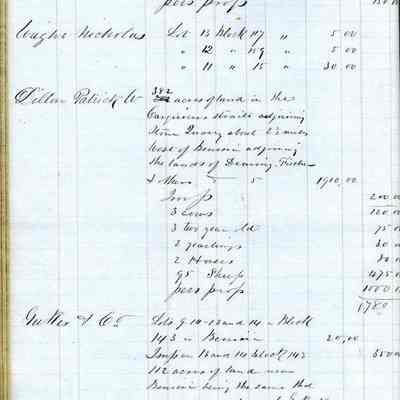 pers prop
Nicholas Lot 13 Block 117 " 5 00
" 12 " 119 " 5 00
" 11 " 15 " 30.00
Dillon Patrick W 382 acres of land in the
Carquinez straits adjoining
Stone Quarry about 2½ miles
West of Benicia adjoining
the lands of
5 1910,00
Imp 200 0
3 cows 120
3 two year old 75
2 yearlings 30
2 Horses 80
95 Sheep 475
pers prop 1000
6780
& Co Lots 9 10-13 and 14 in Block
143 in Benicia 20,00
Imp on 13 and 14 Block 143 550
112 acres of land near
Benicia being the same that